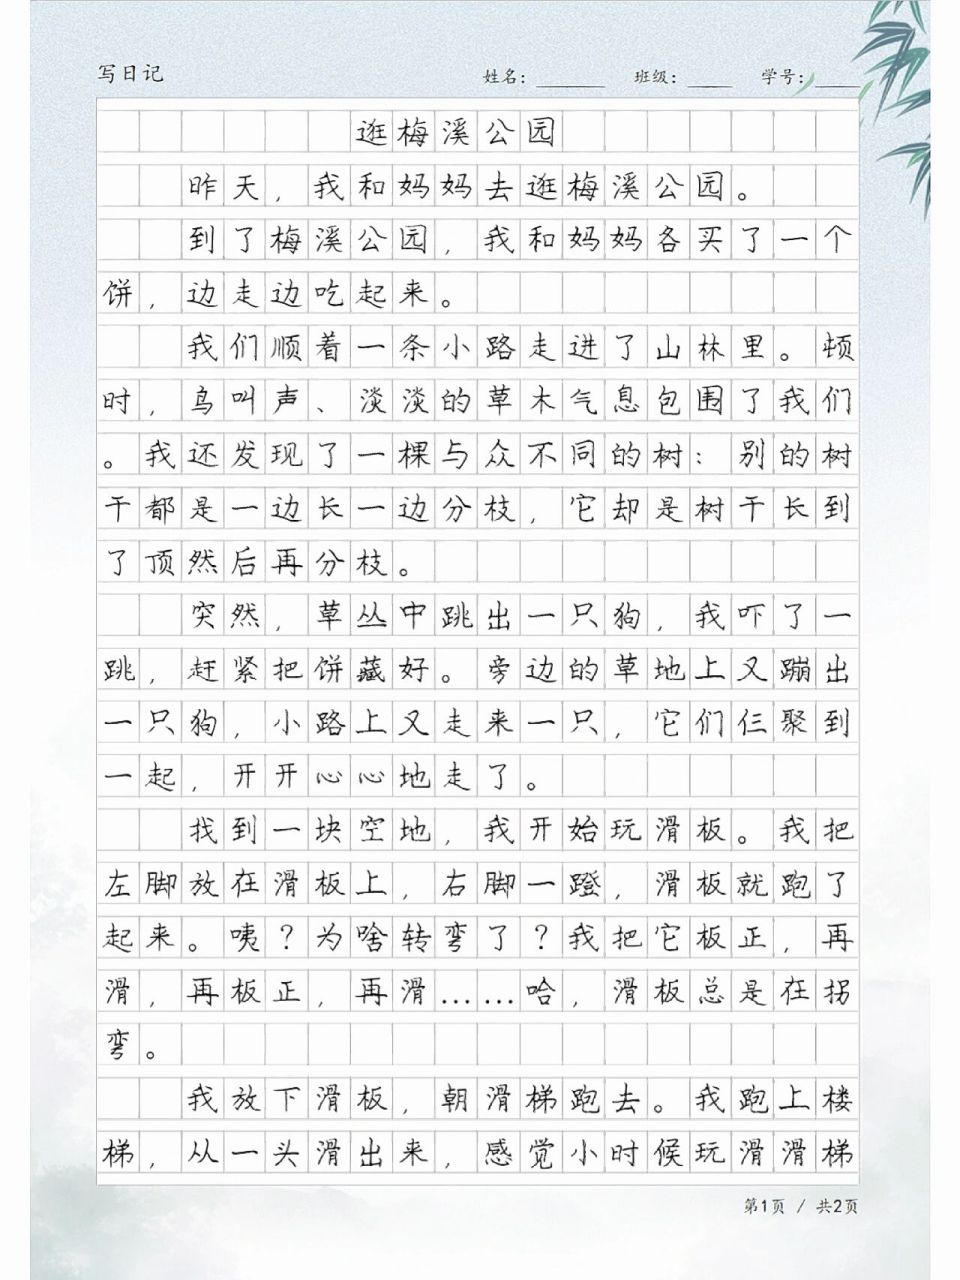 写日记 姓名：______ 班级：____ 学号：____
逛梅溪公园
昨天，我和妈妈去逛梅溪公园。
到了梅溪公园，我和妈妈各买了一个
饼，边走边吃起来。
我们顺着一条小路走进了山林里。顿
时，鸟叫声、淡淡的草木气息包围了我们
。我还发现了一棵与众不同的树：别的树
干都是一边长一边分枝，它却是树干长到
了顶然后再分枝。
突然，草丛中跳出一只狗，我吓了一
跳，赶紧把饼藏好。旁边的草地上又蹦出
一只狗，小路上又走来一只，它们仨聚到
一起，开开心心地走了。
找到一块空地，我开始玩滑板。我把
左脚放在滑板上，右脚一蹬，滑板就跑了
起来。咦？为啥转弯了？我把它板正，再
滑，再板正，再滑……哈，滑板总是在拐
弯。
我放下滑板，朝滑梯跑去。我跑上楼
梯，从一头滑出来，感觉小时候玩滑滑梯
第1页 / 共2页